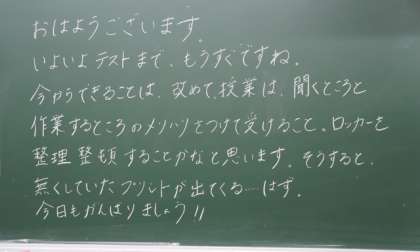 おはようございます。
いよいよテストまで、もうすぐですね。
今からできることは、改めて、授業は、聞くところと
作業するところのメリハリをつけて受けること。ロッカーを
整理整頓することかなと思います。そうすると、
無くしていたプリントが出てくる…はず。
今日もがんばりましょう!!